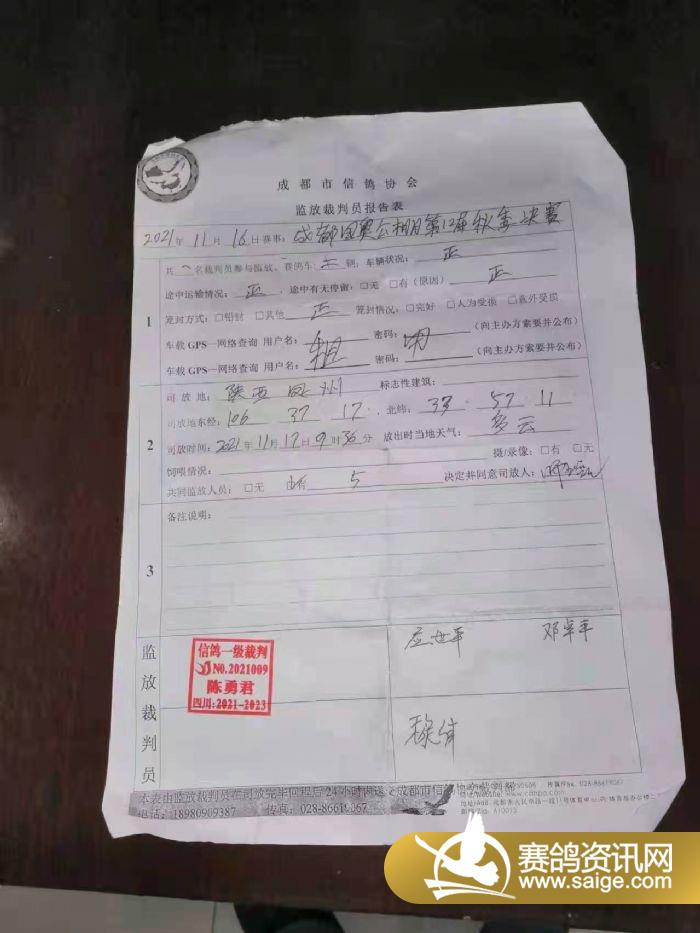 成都市信鸽协会
监放裁判员报告表
2021年 11月 16日赛事: 成都国奥公棚第12届秋季决赛
共 名裁判员参与监放、赛鸽车 辆, 车辆状况: 正
途中运输情况: 正 途中有无停留:□无 □有(原因) 正
1
笼封方式:□铅封 □其他 正 笼封情况:□完好 □人为受损 □意外受损
车载 GPS—网络查询 用户名: 密码: (向主办方索要并公布)
车载 GPS—网络查询 用户名: 密码: (向主办方索要并公布)
司放地: 陕西凤州 标志性建筑:
司放地东经: 106 37 17 , 北纬: 33 57 11
2
司放时间: 2021年 11月 17日 9时 36分 放出时当地天气: 多云
饲喂情况: 摄/录像: □有 □无
共同监放人员: □无 5 决定并同意司放人:
备注说明:
3
监放裁判员
信鸽一级裁判
NO.2021009
陈勇君
四川:2021-2023
邓军
本表由监放裁判员在司放完毕回程后24小时内送交成都市信鸽协会裁判部
电话: 18980909387 传真: 028-86619067
赛鸽资讯网
www.saige.com